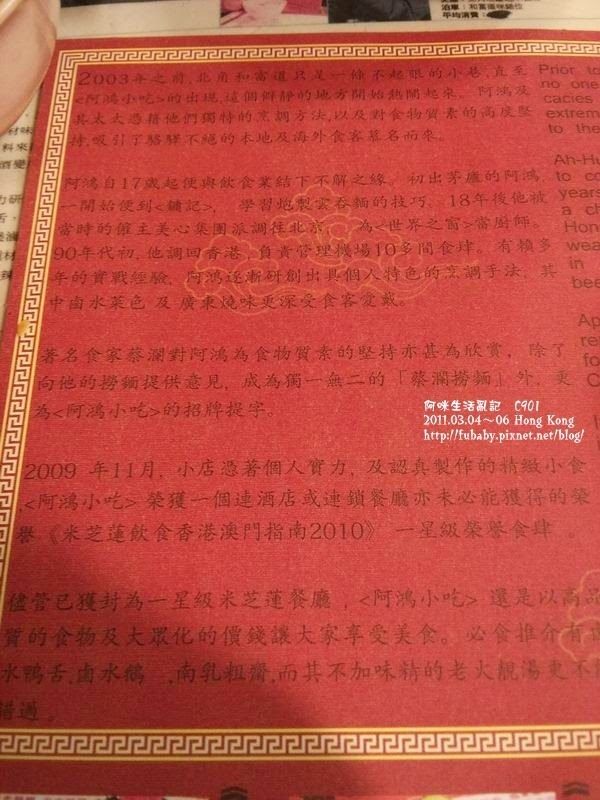 泊車：和富道咪錶位
平均消費：
2003年之前,北角和富道只是一條不起眼的小巷,直至
<阿鴻小吃>的出現,這個僻靜的地方開始熱鬧起來。阿鴻及
其太太憑藉他們獨特的烹調方法,以及對食物質素的高度堅
持,吸引了駱驛不絕的本地及海外食客慕名而來。
阿鴻自17歲起便與飲食業結下不解之緣。初出茅廬的阿鴻
一開始便到<鏞記>, 學習炮製雲吞麵的技巧。18年後他被
當時的僱主美心集團派調往北京, 為<世界之窗>當廚師。
90年代初,他調回香港,負責管理機場10多間食肆。有賴多
年的實戰經驗, 阿鴻逐漸研創出具個人特色的烹調手法, 其
中鹵水菜色 及 廣東燒味更深受食客愛戴。
著名食家蔡瀾對阿鴻為食物質素的堅持亦甚為欣賞, 除了
向他的撈麵提供意見, 成為獨一無二的「蔡瀾撈麵」外, 更
為<阿鴻小吃>的招牌提字。
2009 年11月, 小店憑著個人實力, 及認真製作的精緻小食
,<阿鴻小吃> 榮獲一個連酒店或連鎖餐廳亦未必能獲得的榮
譽《米芝蓮飲食香港澳門指南2010》 一星級榮譽食肆 。
儘管已獲封為一星級米芝蓮餐廳 , <阿鴻小吃> 還是以高品
質的食物及大眾化的價錢讓大家享受美食。必食推介有
水鴨舌,鹵水鵝 ,南乳粗齋,而其不加味精的老火靚湯更不
錯過 。
Prior to
no one
cacies
extrem
to the
Ah-Hu
to co
years
a ch
Hon
wea
in
bee
阿咪生活亂記 C901
2011.03.04～06 Hong Kong
http://fubaby.pixnet.net/blog/